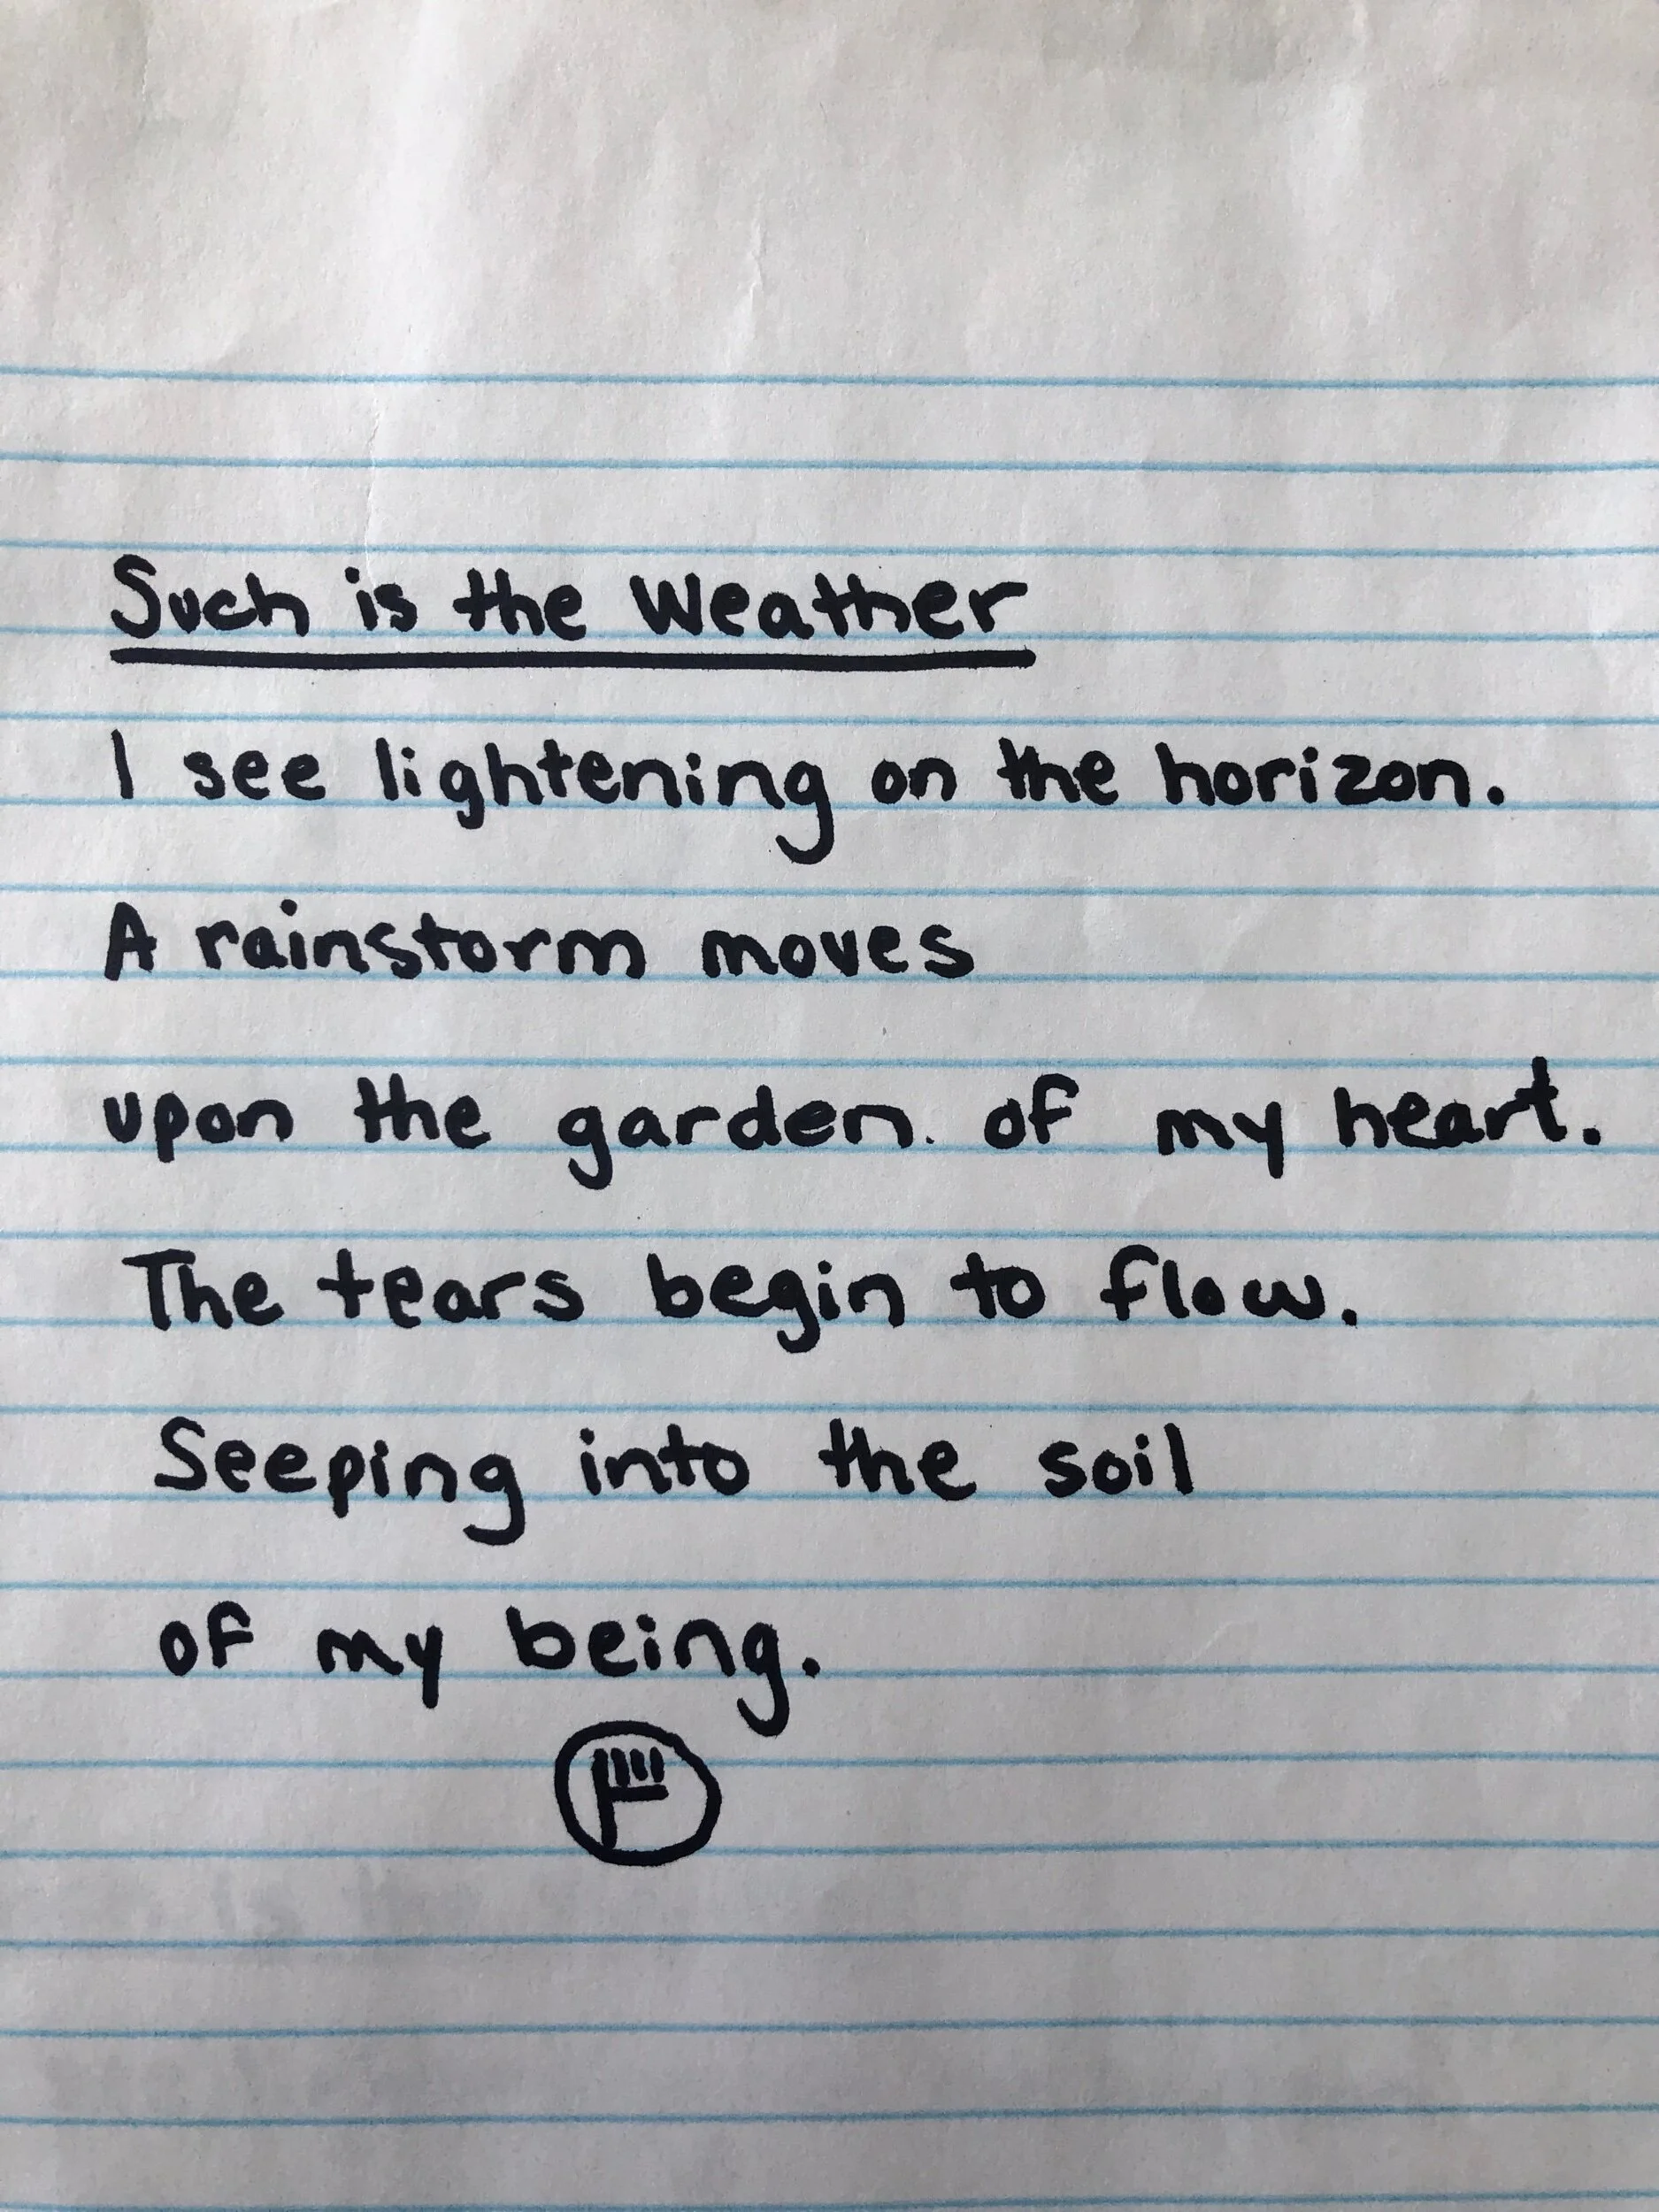 Such is the Weather
I see lightening on the horizon.
A rainstorm moves
upon the garden. of my heart.
The tears begin to flow.
Seeping into the soil
of my being.